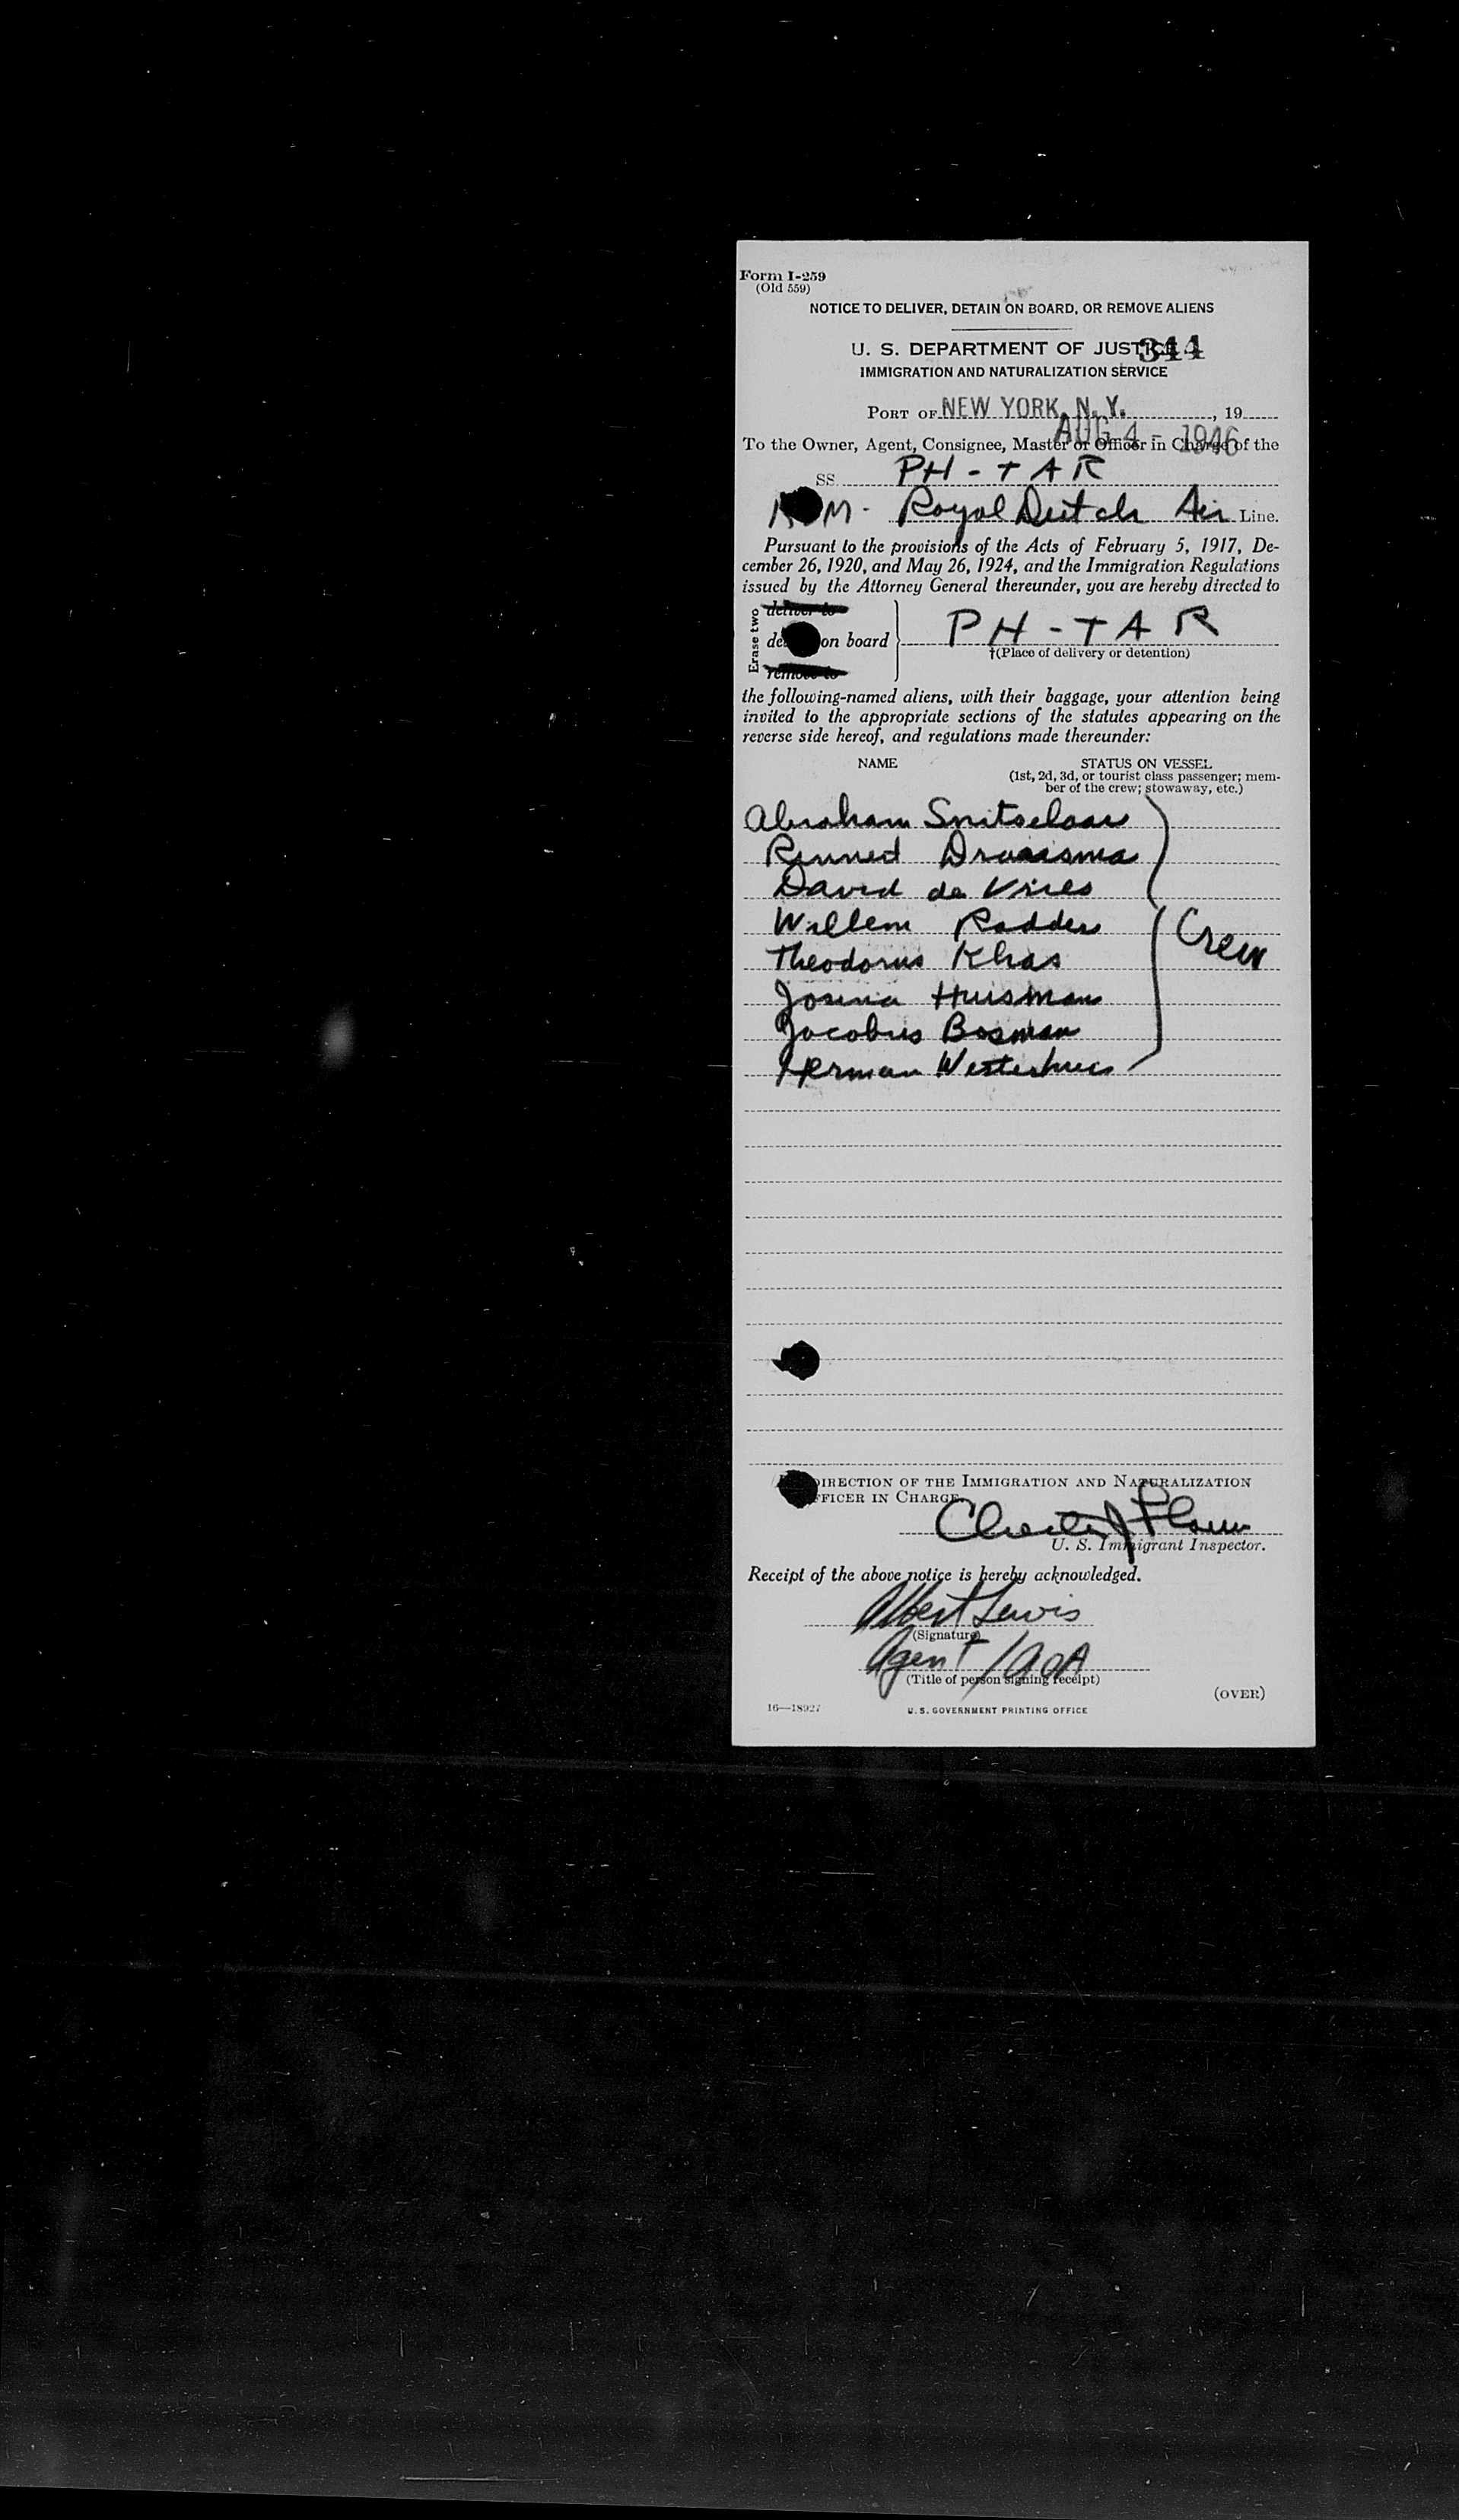 Form I-259
(Old 559)
NOTICE TO DELIVER, DETAIN ON BOARD, OR REMOVE ALIENS
U. S. DEPARTMENT OF JUSTICE 344
IMMIGRATION AND NATURALIZATION SERVICE
PORT OF NEW YORK, N. Y. , 19
AUG 4 - 1946
To the Owner, Agent, Consignee, Master or Officer in Charge of the
SS. PH-TAR
M - Royal Dutch Air Line.
Pursuant to the provisions of the Acts of February 5, 1917, De-
cember 26, 1920, and May 26, 1924, and the Immigration Regulations
issued by the Attorney General thereunder, you are hereby directed to
Erase two
deliver to
on board PH-TAR
†(Place of delivery or detention)
remove to
the following-named aliens, with their baggage, your attention being
invited to the appropriate sections of the statutes appearing on the
reverse side hereof, and regulations made thereunder:
NAME STATUS ON VESSEL
(1st, 2d, 3d, or tourist class passenger; mem-
ber of the crew; stowaway, etc.)
Abraham Snitselaar
David de Vries
Willem Radder
Crew
Theodorus Klaas
Josina Huisman
Jacobus Bosman
Herman Westerhuis
DIRECTION OF THE IMMIGRATION AND NATURALIZATION
OFFICER IN CHARGE
Chester J
U. S. Immigrant Inspector.
Receipt of the above notice is hereby acknowledged.
Albert Lewis
(Signature)
Agent / AOA
(Title of person signing receipt)
(OVER)
16—18927 U. S. GOVERNMENT PRINTING OFFICE